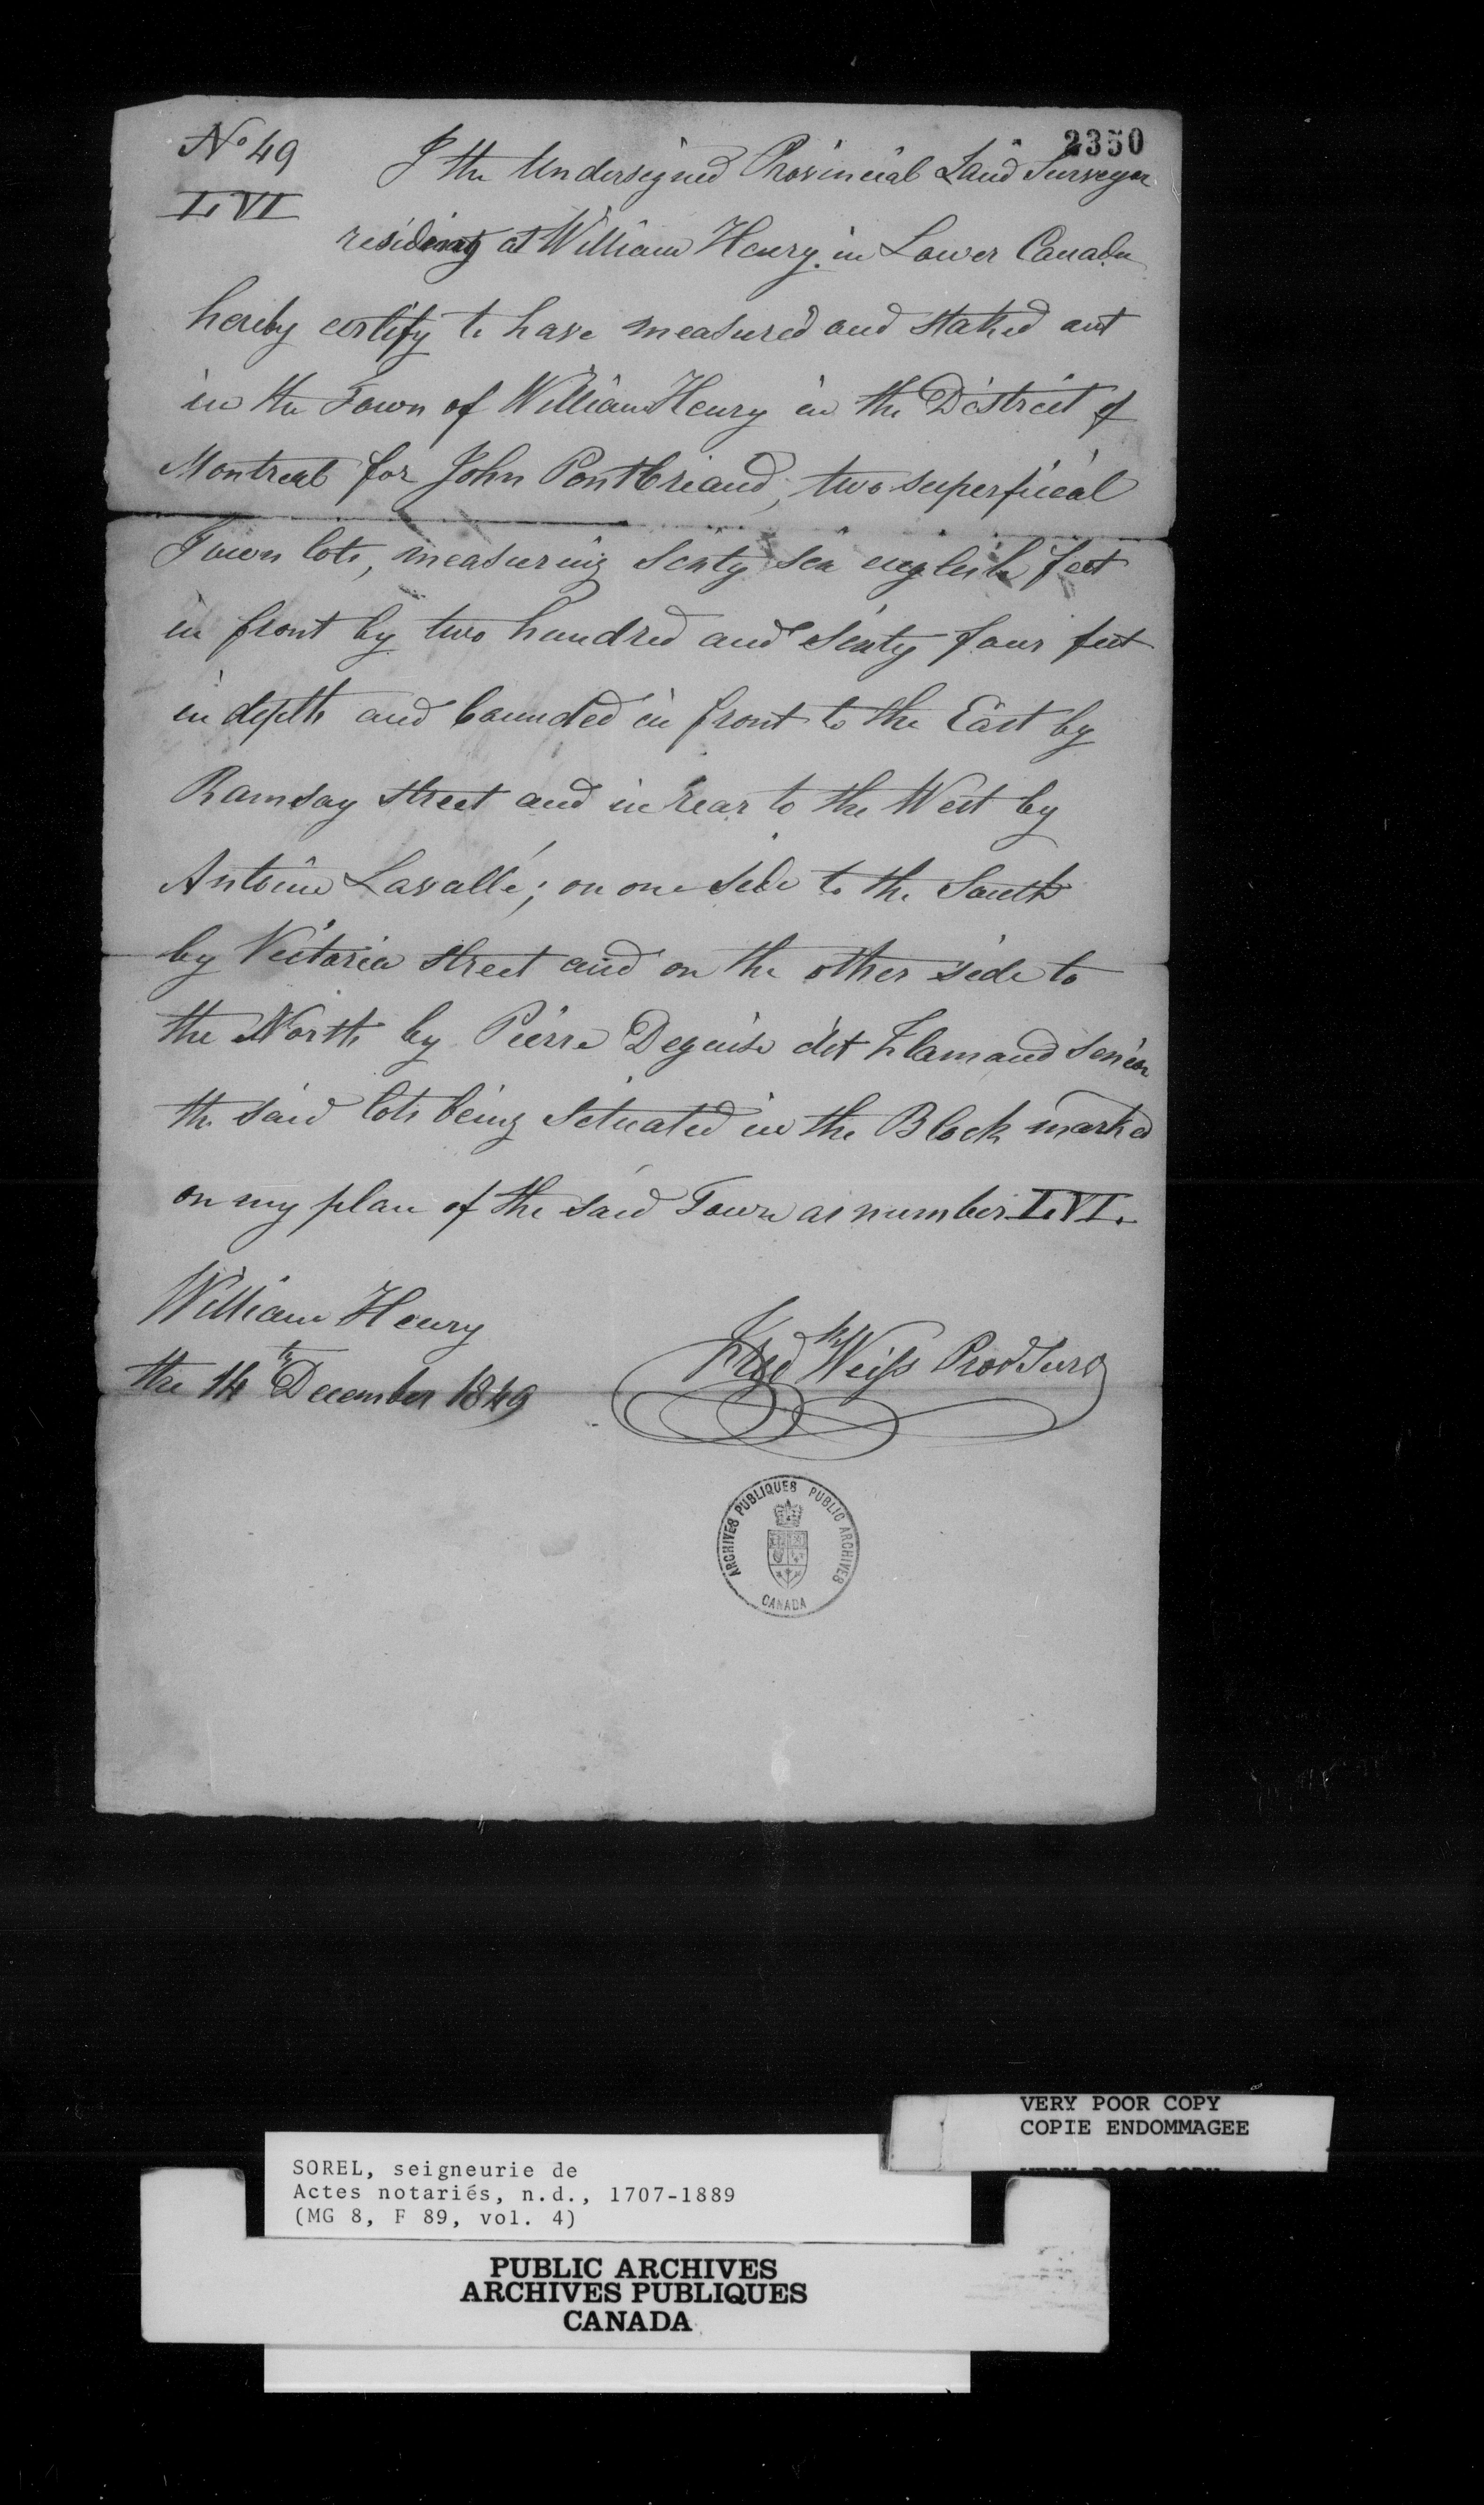 2350
No 49
LVI
I the Undersigned Provincial Land Surveyor
residing at William Henry in Lower Canada
hereby certify to have measured and staked out
in the Town of William Henry in the District of
Montreal for John Pontbriand, two superficial
Town lots, measuring sixty six english feet
in front by two hundred and sixty four feet
in depth and bounded in front to the East by
Ramsay street and in rear to the West by
Antoine Lavallé; on one side to the South
by Victoria street and on the other side to
the North by Pierre Deguise dit Flamand senior
the said lots being situated in the Block marked
on my plan of the said Town as number LVI.
William Henry
the 14th December 1849
Fredk Weiss Prov Surv
ARCHIVES PUBLIQUES PUBLIC ARCHIVES
CANADA
VERY POOR COPY
COPIE ENDOMMAGEE
SOREL, seigneurie de
Actes notariés, n.d., 1707-1889
(MG 8, F 89, vol. 4)
PUBLIC ARCHIVES
ARCHIVES PUBLIQUES
CANADA